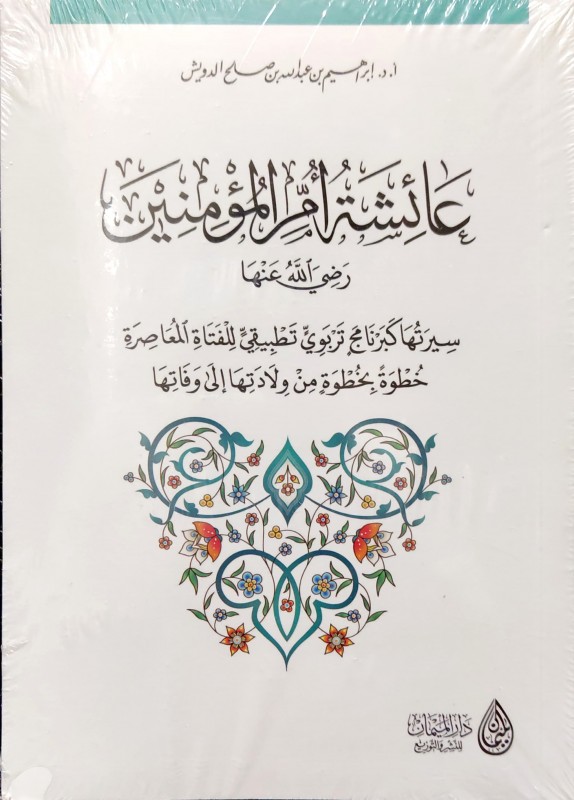 أ. د. إبراهيم بن عبدالله بن صالح الدويش
عَائِشَةُ أُمُّ الْمُؤْمِنِيْنَ
رَضِيَ ٱللَّهُ عَنْهَا
سِيرَتُهَا كَبَرْنَامَجٍ تَرْبَوِيٍّ تَطْبِيقِيٍّ لِلْفَتَاةِ الْمُعَاصِرَةِ
خُطْوَةً بِخُطْوَةٍ مِنْ وِلَادَتِهَا إِلَى وَفَاتِهَا
دار الميمان
للنشر والتوزيع
الميمان